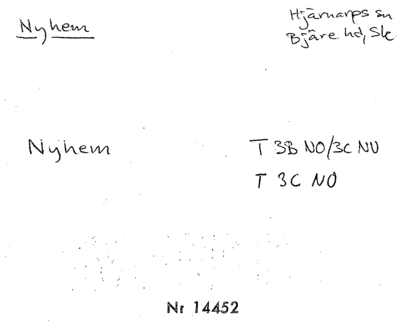 Nyhem
Hjärnarps sn
Bjäre hd, Sk.
Nyhem
T 3B NO/3C NV
T 3C NO
Nr 14452